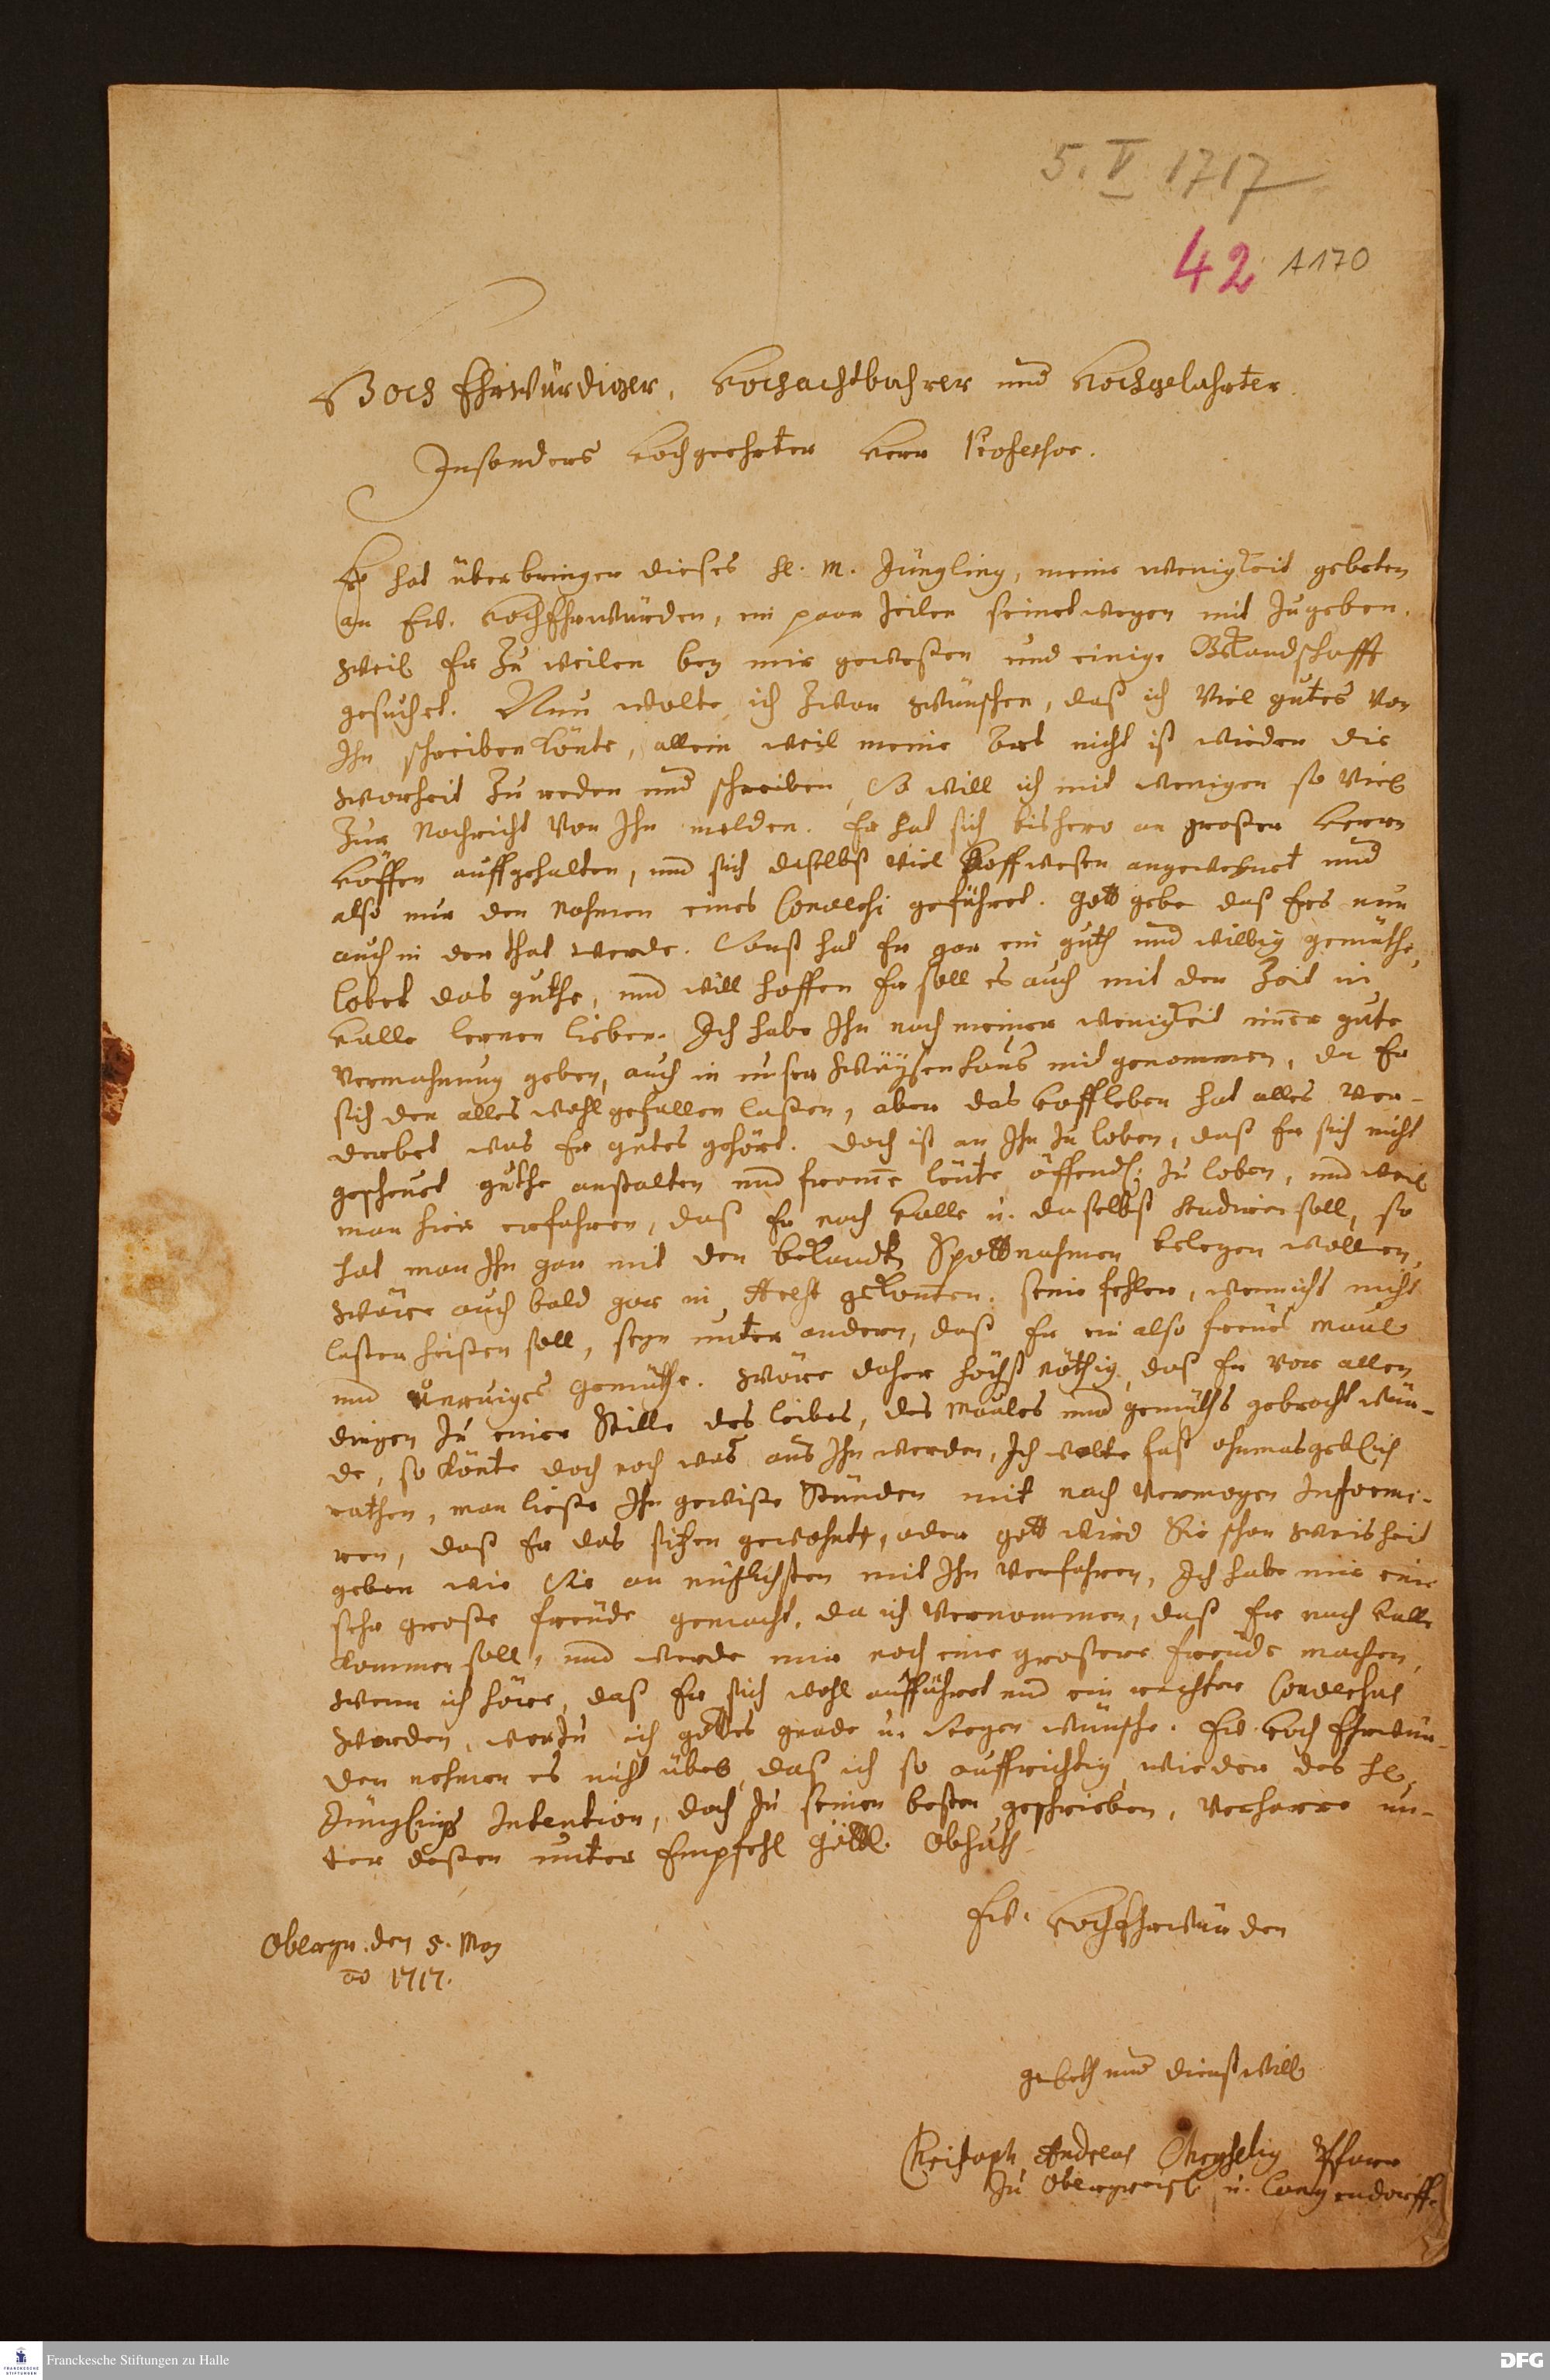 5. V 1717
42 A170
HochEhrwürdiger, Hochachtbahrer und Hochgelahrter
Insonders Hochgeehrter Herr Professor.
Es hat überbringer dieses H. M. Jüngling, meine wenigkeit gebeten
an Ew. HochEhrwürden, ein paar Zeilen seinetwegen mit zugeben.
weil Er Zu weilen bey mir geweßen und einige Bekandschafft
gesuchet. Nun wolte ich Zwar wünschen, daß ich Viel gutes von
Ihn schreiben könte, allein weil meine Art nicht ist wieder die
warheit Zu reden und schreiben, So will ich mit wenigen so viel
Zur Nachricht Von Ihn melden. Er hat sich bishero an großer Herrn
Höffen auffgehalten, und sich daselbst viel Hoffwesen angewehnet und
also nur den Nahmen eines Conversi geführet. Gott gebe daß Ers nun
auch in der that werde. Sonst hat Er gar ein guth und willig gemüthe,
lobet das guthe, und will hoffen Er soll es auch mit der Zeit in
Halle lernen lieben. Ich habe Ihn nach meiner wenigkeit im̅er gute
Vermahnung geben, auch in unser Wäysenhaus mit genommen, da Er
sich den alles wohl gefallen laßen, aber das Hoffleben hat alles ver-
derbet was Er gutes gehört. Doch ist an Ihn zu loben, daß Er sich nicht
gescheuet guthe anstalten und from̅e leute öffendl. zu loben, und weil
man hier erfahren, daß Er nach Halle u. daselbst studiren soll, so
hat man Ihn gar mit den bekandte Spottnahmen belegen wollen,
wäre auch bald gar in Arest gekom̅en. seine fehler, wennichs nicht
laster heißen soll, seyn unter andern, daß Er ein also freües maul
und unruiges Gemüthe. Wäre daher höchst nöthig, daß Er vor allen
dingen zu einer Stille des leibes, des Maules und gemüths gebracht wür-
de, so könte doch noch was aus Ihn werden, Ich wolte fast ohnmasgeblich
rathen, man ließe Ihn gewiße Stunden mit nach Vermögen Informi-
ren, daß Er das sitzen gewohnte, oder Gott wird Sie schon Weisheit
geben wie Sie am nützlichsten mit Ihn verfahren, Ich habe mir eine
sehr große freüde gemacht, da ich Vernommen, daß Er nach Halle
kommen soll, und werde mir noch eine großere freüde machen,
wenn ich höre, daß Er sich wohl aufführet und ein rechter Conversus
worden, worzu ich Gottes gnade u. Seegen wünsche. Ew. Hoch Ehrwür-
den nehmen es nicht übel, daß ich so auffrichtig, wieder des H.
Jünglings Intention, doch zu seinen besten geschrieben, Verharre un-
ter deßen unter Empfehl Göttl. Obhuth
Ew. HochEhrwürden
Oberg. den 5. May
ao 1717.
gebeth und dienstwill.
Christoph Andreas Pfarr
zu u. Langendorff.
Franckesche Stiftungen zu Halle
DFG